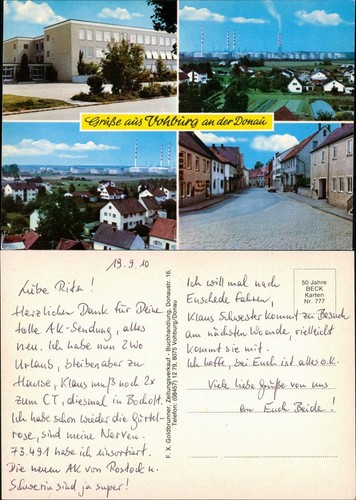 Grüße aus Vohburg an der Donau
19.9.10
Liebe Rita!
Herzlichen Dank für Deine
tolle AK-Sendung, alles
neu. Ich habe nun 2 Wo
Urlaub, bleiben aber zu
Hause, Klaus muß noch 2x
zum CT, diesmal in Bocholt.
Ich habe schon wieder die Gürtel-
rose, sind meine Nerven.
73.491 habe ich einsortiert.
Die neuen AK von Rostock u.
Schwerin sind ja super!
F. X. Goldbrunner, Zeitungsverkauf - Buchhandlung, Donaustr. 16,
Telefon: (08457) 12 79, 8075 Vohburg/Donau
50 Jahre
BECK
Karten
Nr. 777
Ich will mal nach
Enschede fahren,
Klaus Schwester kommt zu Besuch
am nächsten Wo.ende, vielleicht
kommt sie mit.
Ich hoffe, bei Euch ist alles o.k.
Viele liebe Grüße von uns
an Euch Beide!